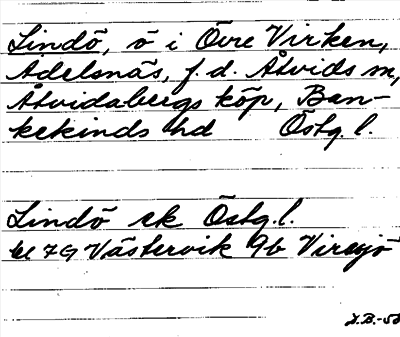 Lindö, ö i Övre Virken,
Adelsnäs, f.d. Åtvids sn,
Åtvidabergs köp, Ban-
kekinds hd Östg. l.
Lindö ek Östg. l.
bl 7G Västervik 9b Viresjö
J.B.-58